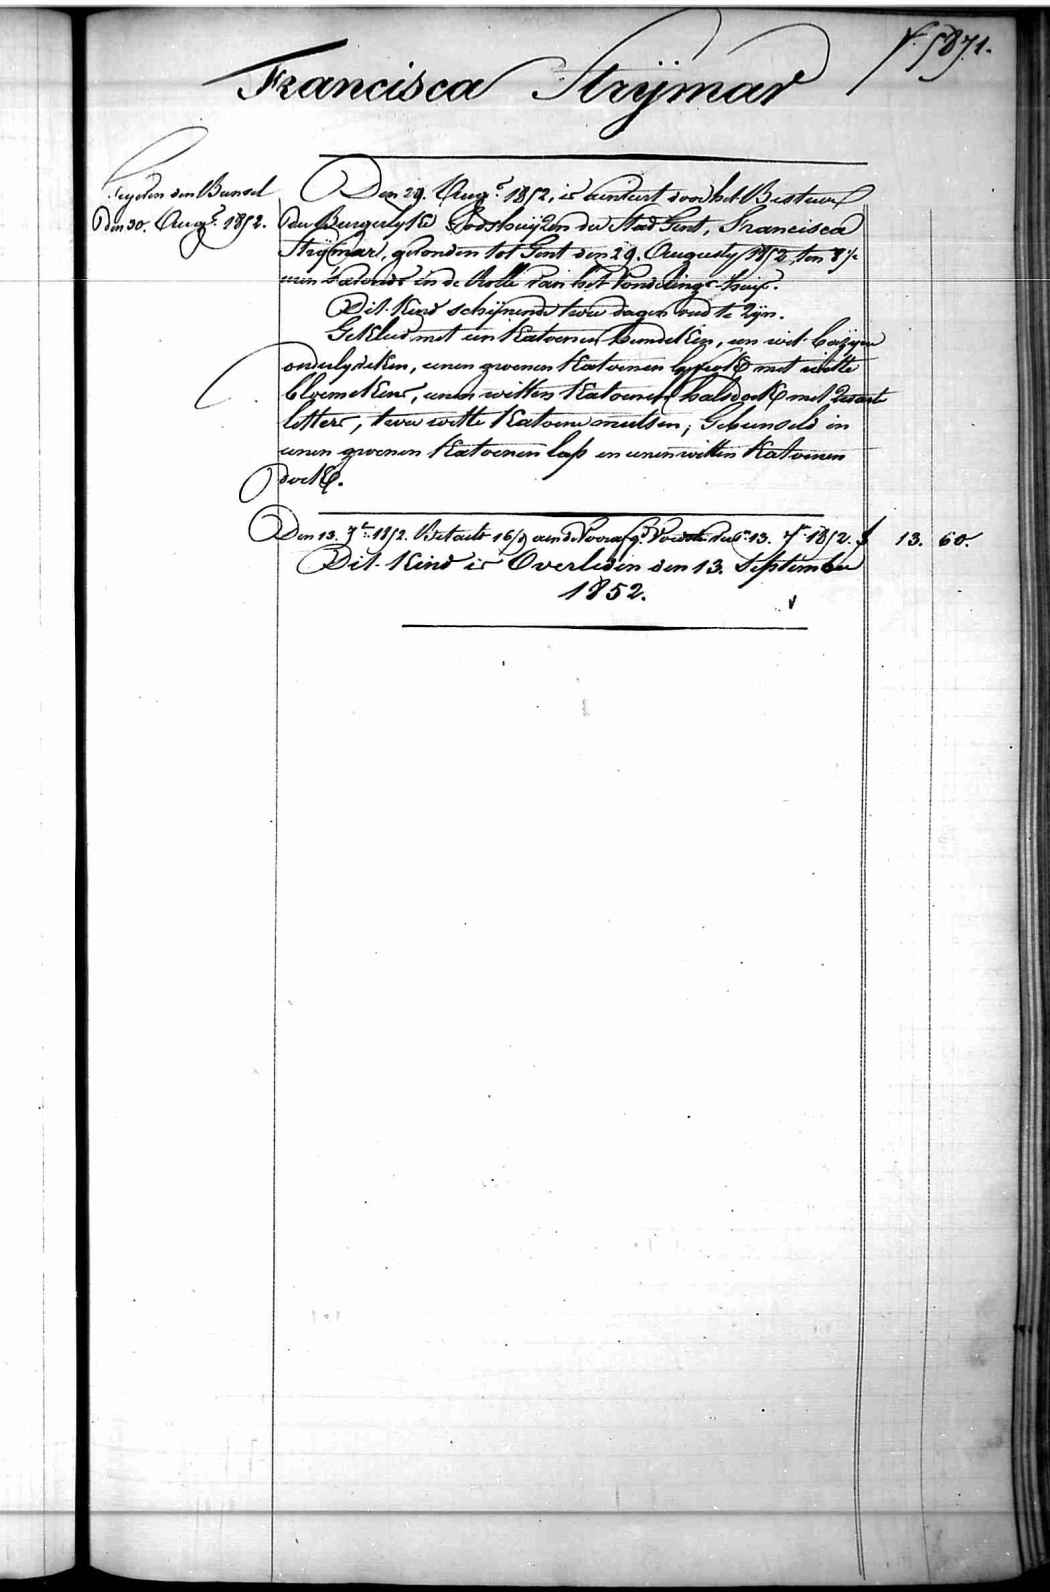 f. 5871.
Francisca Strijmar
den Bunsel
den 30. Augt. 1852.
Den 29. Augt. 1852, is aenveirt door het Bestuur
der Burgerlyke Godshuijzen der Stad Gent, Francisca
Strijmar, gevonden tot Gent den 29. Augusty 1852, ten 8 ½
uren 's avonds in de Rolle van het Vondelings-huis.
Dit Kind schijnende twee dagen oud te zijn.
Gekleed met een Katoenen hemdeken, een wit bazijnen
onderlyveken, eenen groenen Katoenen met witte
bloemekens, eenen witten Katoenen halsdoek met zwarte
letters, twee witte Katoene mutsen; Gebunseld in
eenen groenen Katoenen lap en eenen witten Katoenen
doek.
Den 13. 7b. 1852. Betaelt aen de 13. 7b 1852. f 13. 60.
Dit Kind is Overleden den 13. September
1852.